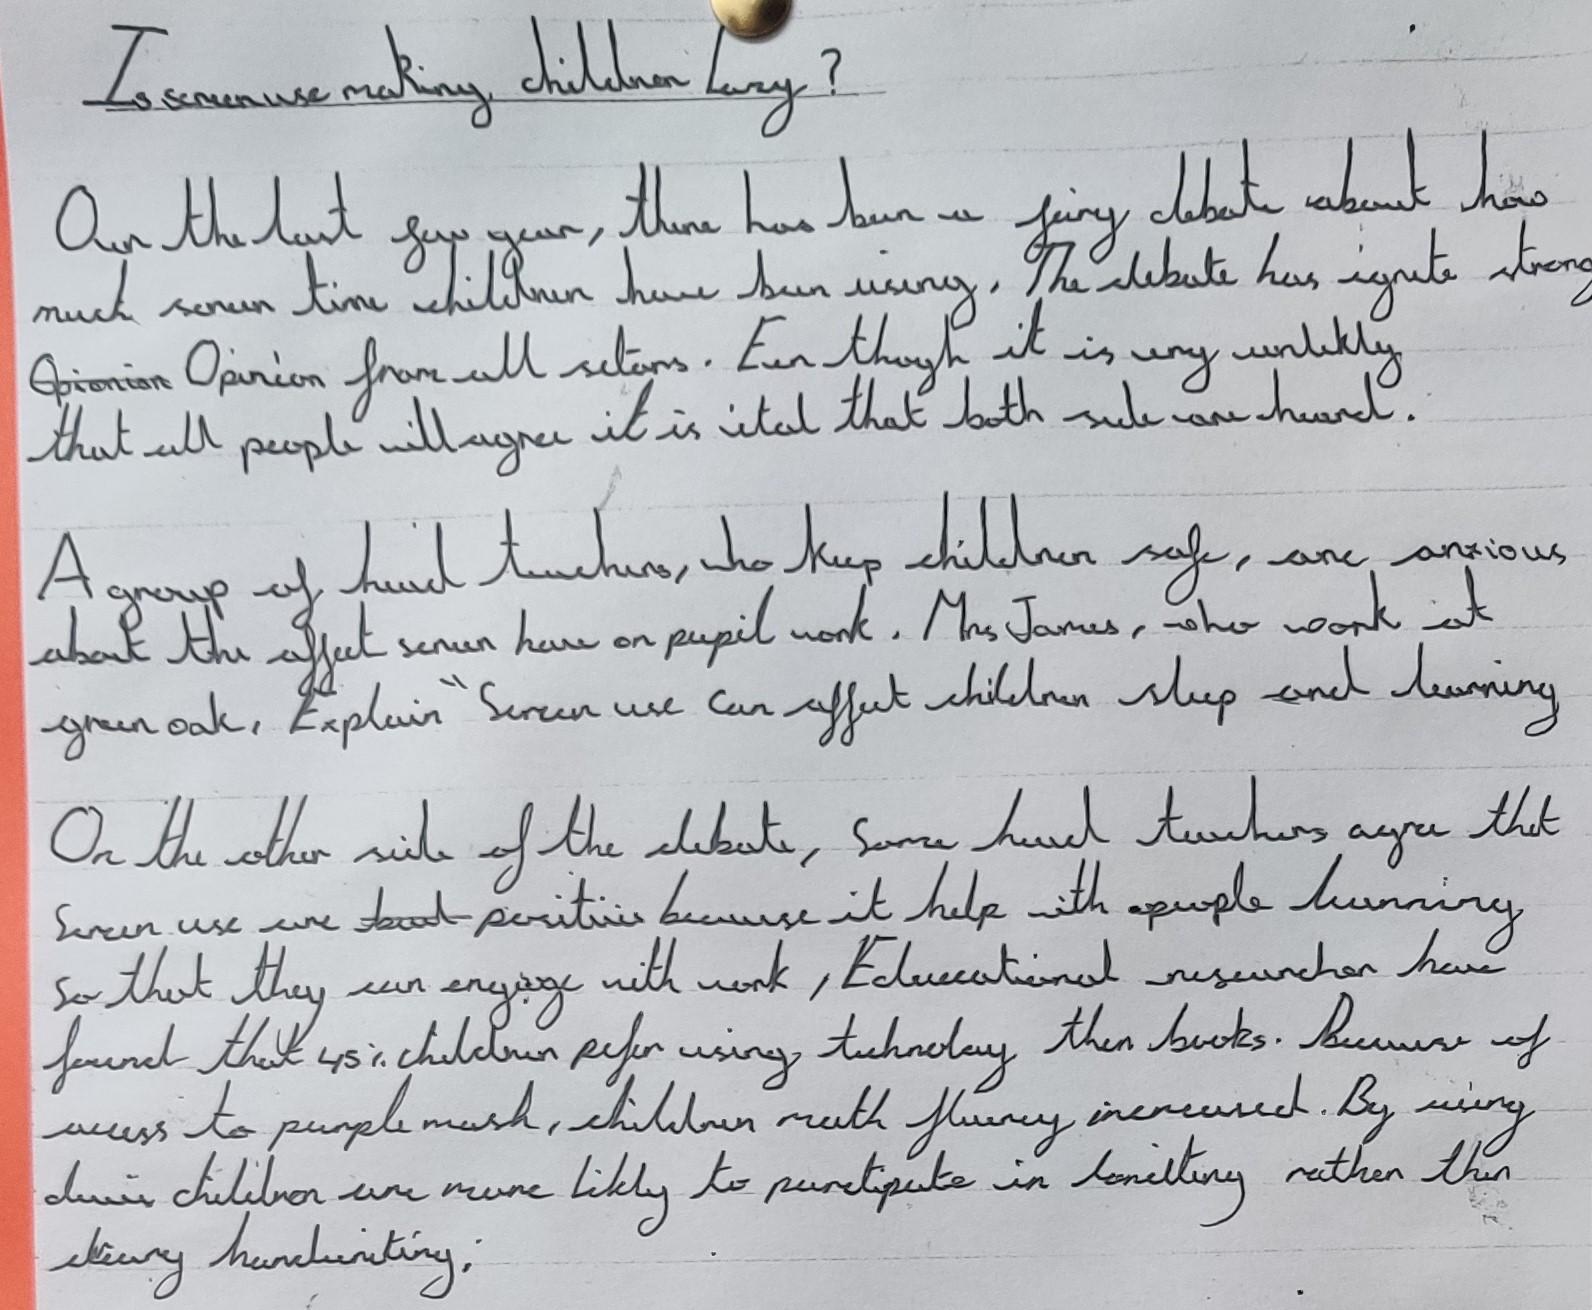 Is screen use making children lazy?
Over the last few year, there has been a firey debate about how
much screen time children have been using. The debate has ignite strong
Opionion Opinion from all setors. Even though it is very unlikly
that all people will agree it is vital that both side are heard.
A group of head teachers, who keep children safe, are anxious
about the affect screen have on pupil work. Mrs James, who work at
green oak, Explain "Screen use can affect children sleep and learning
On the other side of the debate, Some head teachers agree that
Screen use are bad positive because it help with people learning
so that they can engage with work, Educational researcher have
found that 45% children prefer using technolay then books. Because of
access to purple mash, children math fluency increased. By using
device children are more likly to partipate in rather than
doing handwriting.